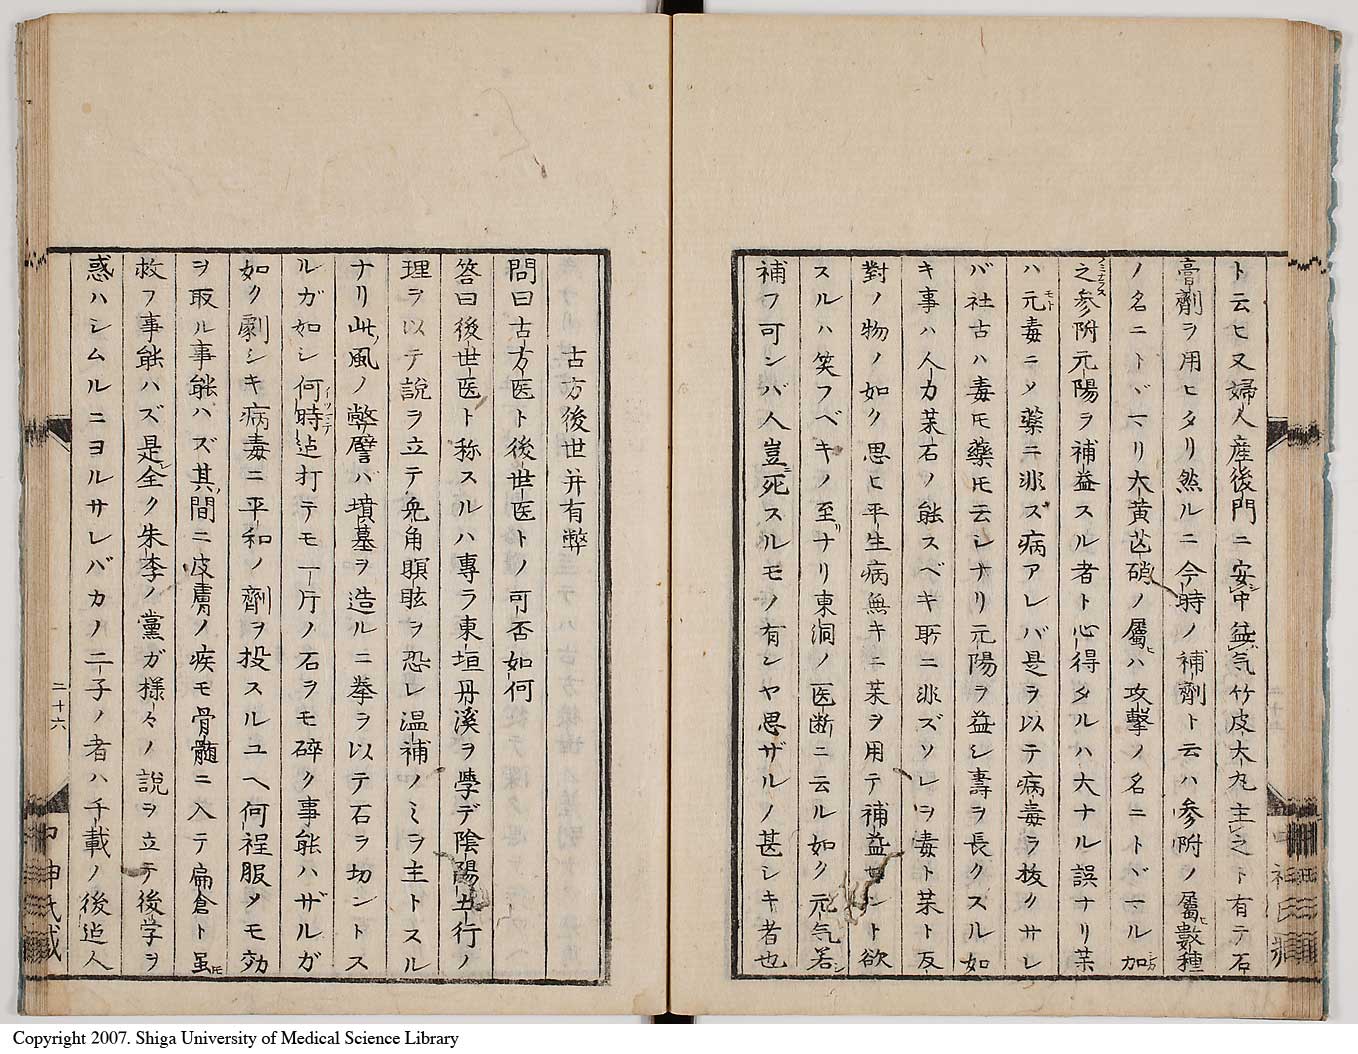 ト云ヒ又婦人産後門ニ安中益気竹皮大丸主之ト有テ石
膏劑ヲ用ヒタリ然ルニ今時ノ補劑ト云ハ参附ノ屬ヒ數種
ノ名ニトヾマリ大黄芒硝ノ屬ヒハ攻撃ノ名ニトヾマル加
之参附元陽ヲ補益スル者ト心得タルハ大ナル誤ナリ薬
ハ元毒ニメ藥ニ非ズ病アレバ是ヲ以テ病毒ヲ抜クサレ
バ社古ハ毒𪜈藥𪜈云シナリ元陽ヲ益シ壽ヲ長クスル如
キ事ハ人力茉石ノ能スベキ所ニ非ズソレヲ毒ト茉ト反
對ノ物ノ如ク思ヒ平生病無キニ茉ヲ用テ補益セント欲
スルハ笑フベキノ至リナリ東洞ノ医断ニ云ル如ク元気若シ
補フ可ンバ人豈ニ死スルモノ有ンヤ思ザルノ甚シキ者也
古方後世并有弊
問曰古方医ト後世医トノ可否如何
答曰後世医ト称スルハ專ラ東垣丹溪ヲ學デ陰陽五行ノ
理ヲ以テ説ヲ立テ兎角瞑眩ヲ恐レ温補ノミヲ主トスル
ナリ此ノ風ノ弊譬バ墳墓ヲ造ルニ拳ヲ以テ石ヲ切ントス
ルガ如シ何時迠打テモ一片ノ石ヲモ碎ク事能ハザルガ
如ク劇シキ病毒ニ平和ノ劑ヲ投スルユヘ何程服メモ効
ヲ取ル事能ハズ其ノ間ニ皮膚ノ疾モ骨髄ニ入テ扁倉ト虽𪜈
救フ事能ハズ是レ全ク朱李ノ黨ガ様々ノ説ヲ立テ後学ヲ
惑ハシムルニヨルサレバカノ二子ノ者ハ千載ノ後迠人
二十六
Copyright 2007. Shiga University of Medical Science Library